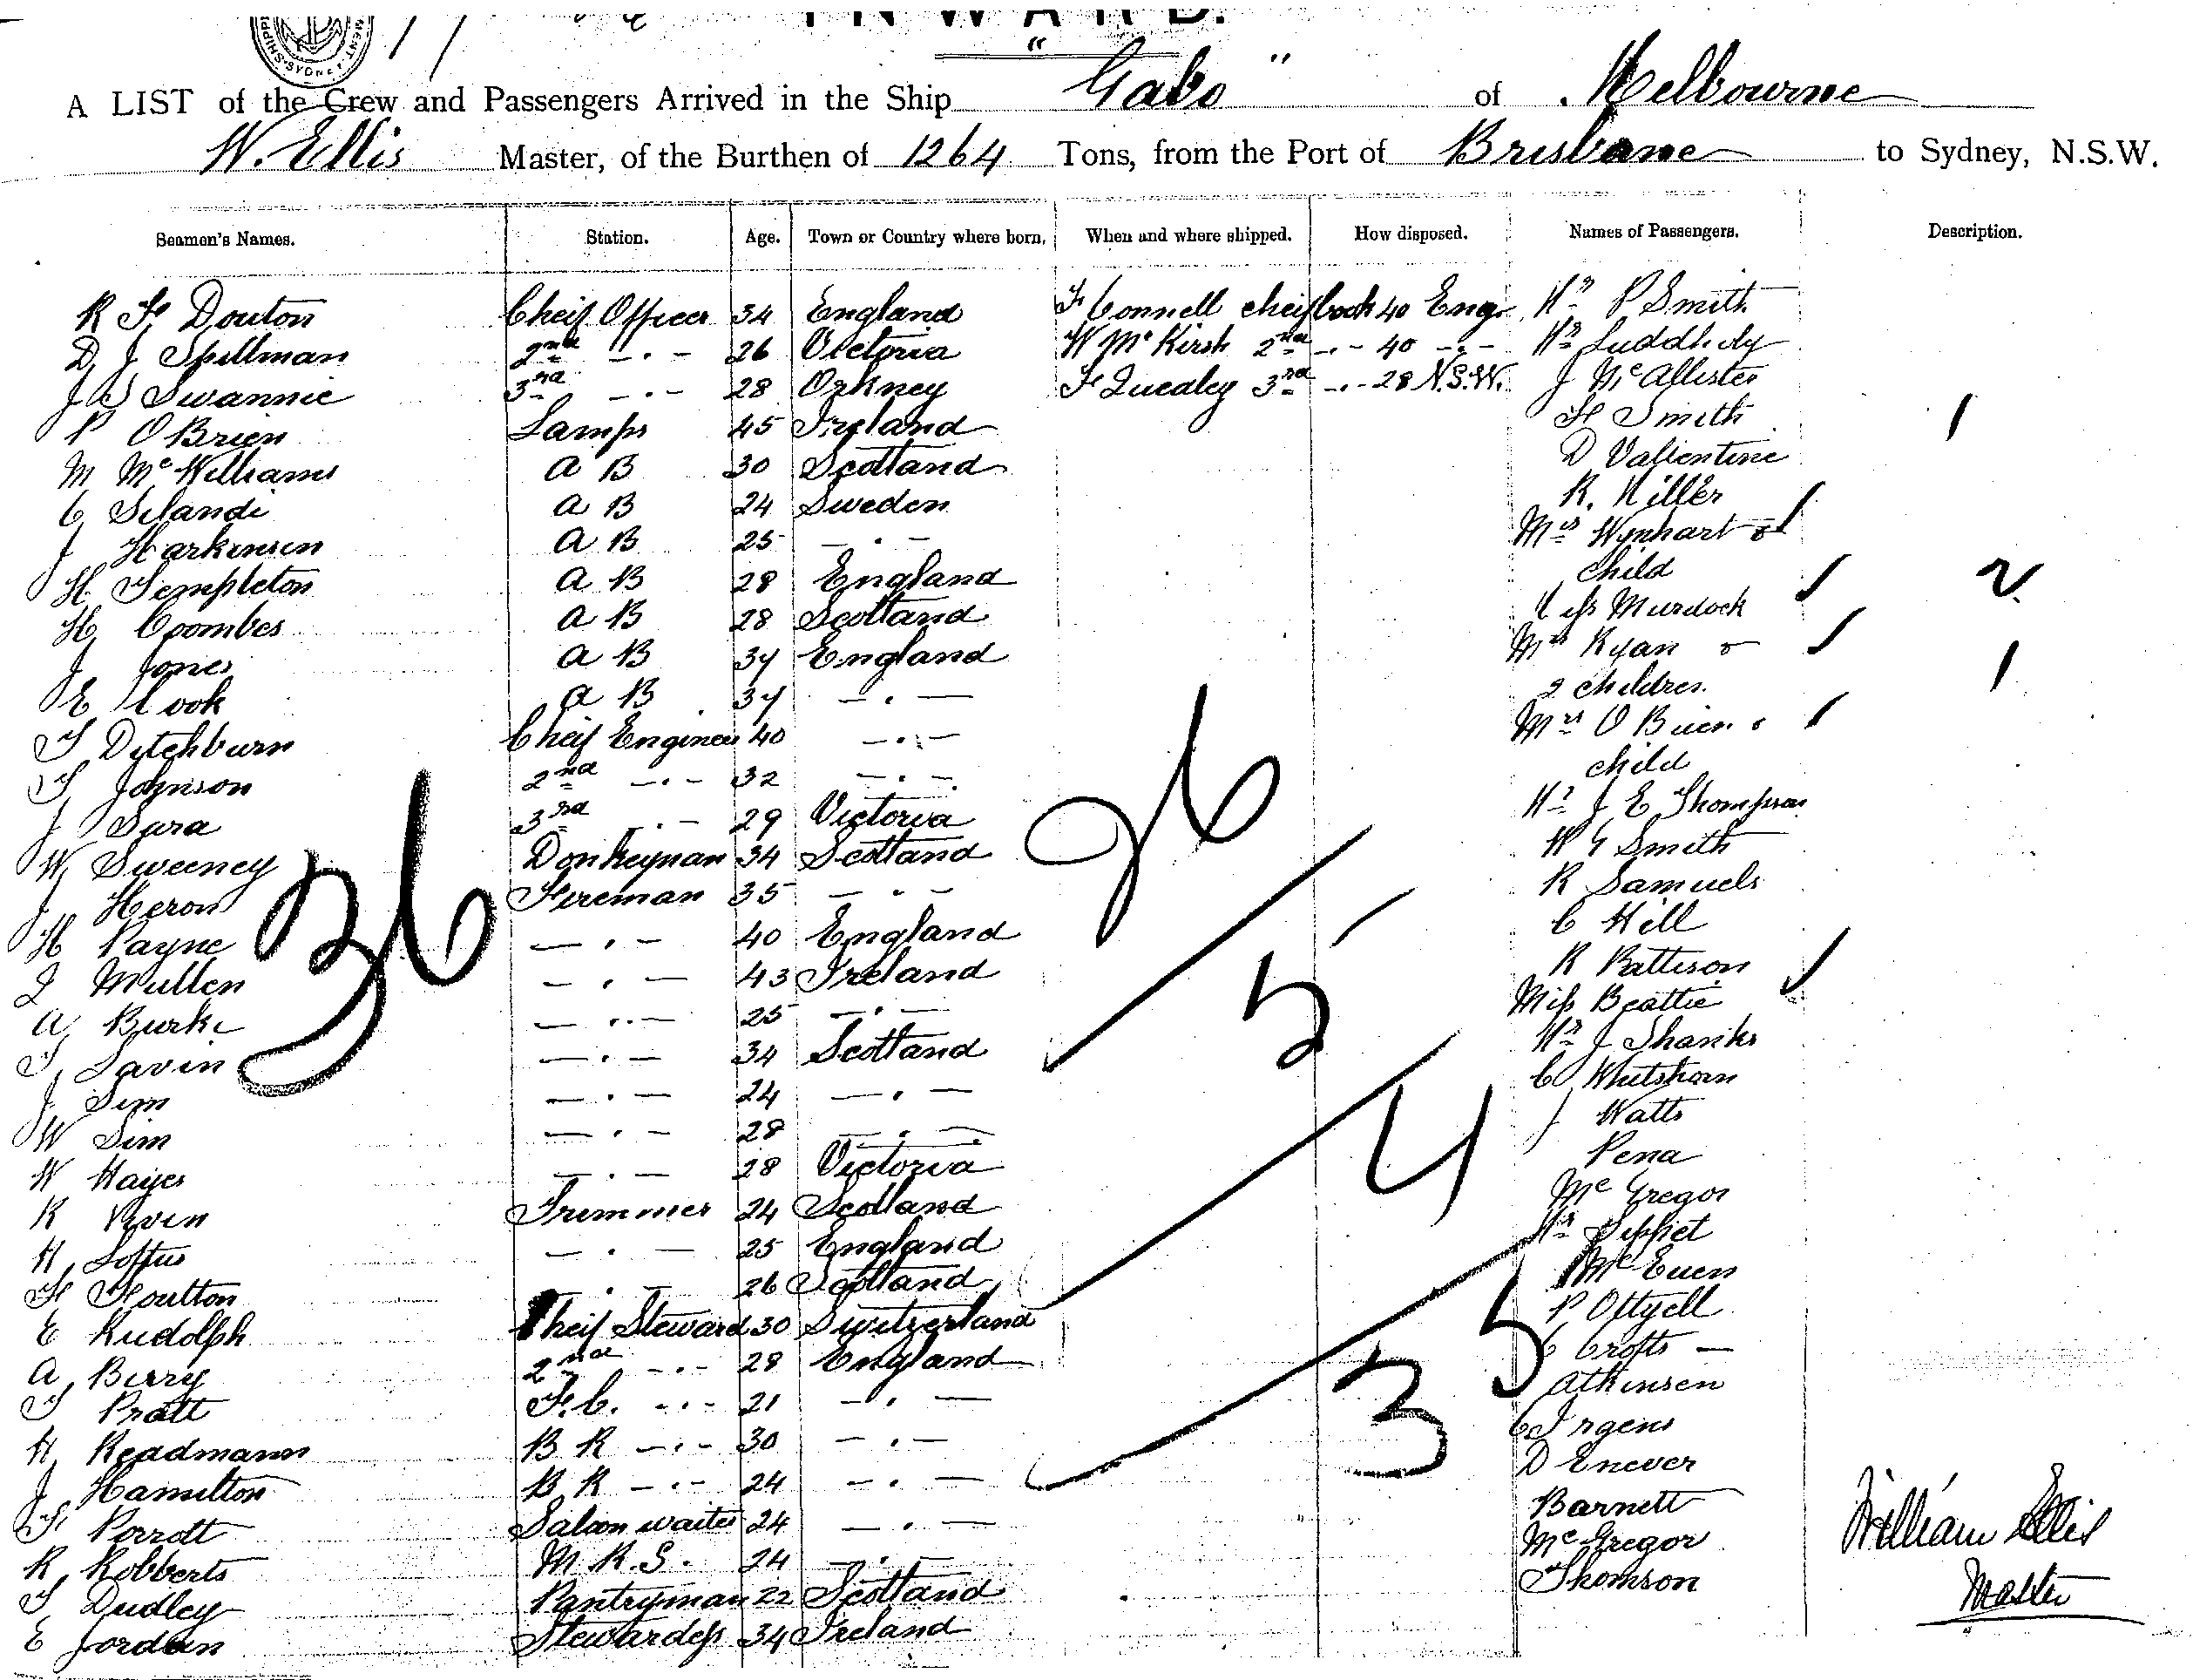 INWARD.
A LIST of the Crew and Passengers Arrived in the Ship "Gabo" of Melbourne
W. Ellis Master, of the Burthen of 1264 Tons, from the Port of Brisbane to Sydney, N.S.W.
Seamen's Names. Station. Age. Town or Country where born. When and where shipped. How disposed. Names of Passengers. Description.
R F Douton Cheif Officer 34 England F Connell cheif Cook 40 Eng. Mr P Smith
D J Spillman 2nd -.- 26 Victoria W McKirsh 2nd -.- 40 -.- Mr Luddholy
J W Swannie 3rd -.- 28 Orkney F Quealey 3rd -.- 28 N.S.W. J McAllister
P O Brien Lamps 45 Ireland H Smith 1
M McWilliams A B 30 Scotland D Vallentine
C Selandi A B 24 Sweden R. Miller
J Harkinsen A B 25 -.- Mrs Wynhart &
H Templeton A B 28 England child 2
H Coombes A B 28 Scotland Miss Murdock
J Jones A B 34 England Mrs Ryan &
E Cook A B 34 -.- 2 children 1
T Ditchburn Cheif Engineer 40 -.- Mrs O Brien &
T Johnson 2nd -.- 32 -.- child
J Sara 3rd -.- 29 Victoria Mr J E Thompson
W Sweeney Donkeyman 34 Scotland W G Smith
J Heron Fireman 35 -.- R Samuels
H Payne -.- 40 England C Hill
J Mullen -.- 43 Ireland R Pattison
A Burke -.- 25 -.- Miss Beattie
T Lavin -.- 34 Scotland Mr J Shanks
J Sim -.- 24 -.- C Whitshorn
W Sim -.- 28 -.- J Watts
W Hayes -.- 28 Victoria Pena
R Trimmer 24 Scotland McGregor
H Loftus -.- 25 England Mr Sippet
F Foulton -.- 26 Scotland McEuen
E Rudolph Cheif Steward 30 Switzerland P Ottyell
A Berry 2nd -.- 28 England C Crofts
T Pratt F.C. -.- 21 -.- Atkinsen
H Readmann B R -.- 30 -.- C Irgens
J Hamilton B R -.- 24 -.- D Enever
F Porrott Saloon waiter 24 -.- Barnett
R Robberts M.R.S. 24 -.- McGregor
T Dudley Pantryman 22 Scotland Thomson
E Jordan Stewardess 34 Ireland
36
26
5
4
35
William Ellis
Master